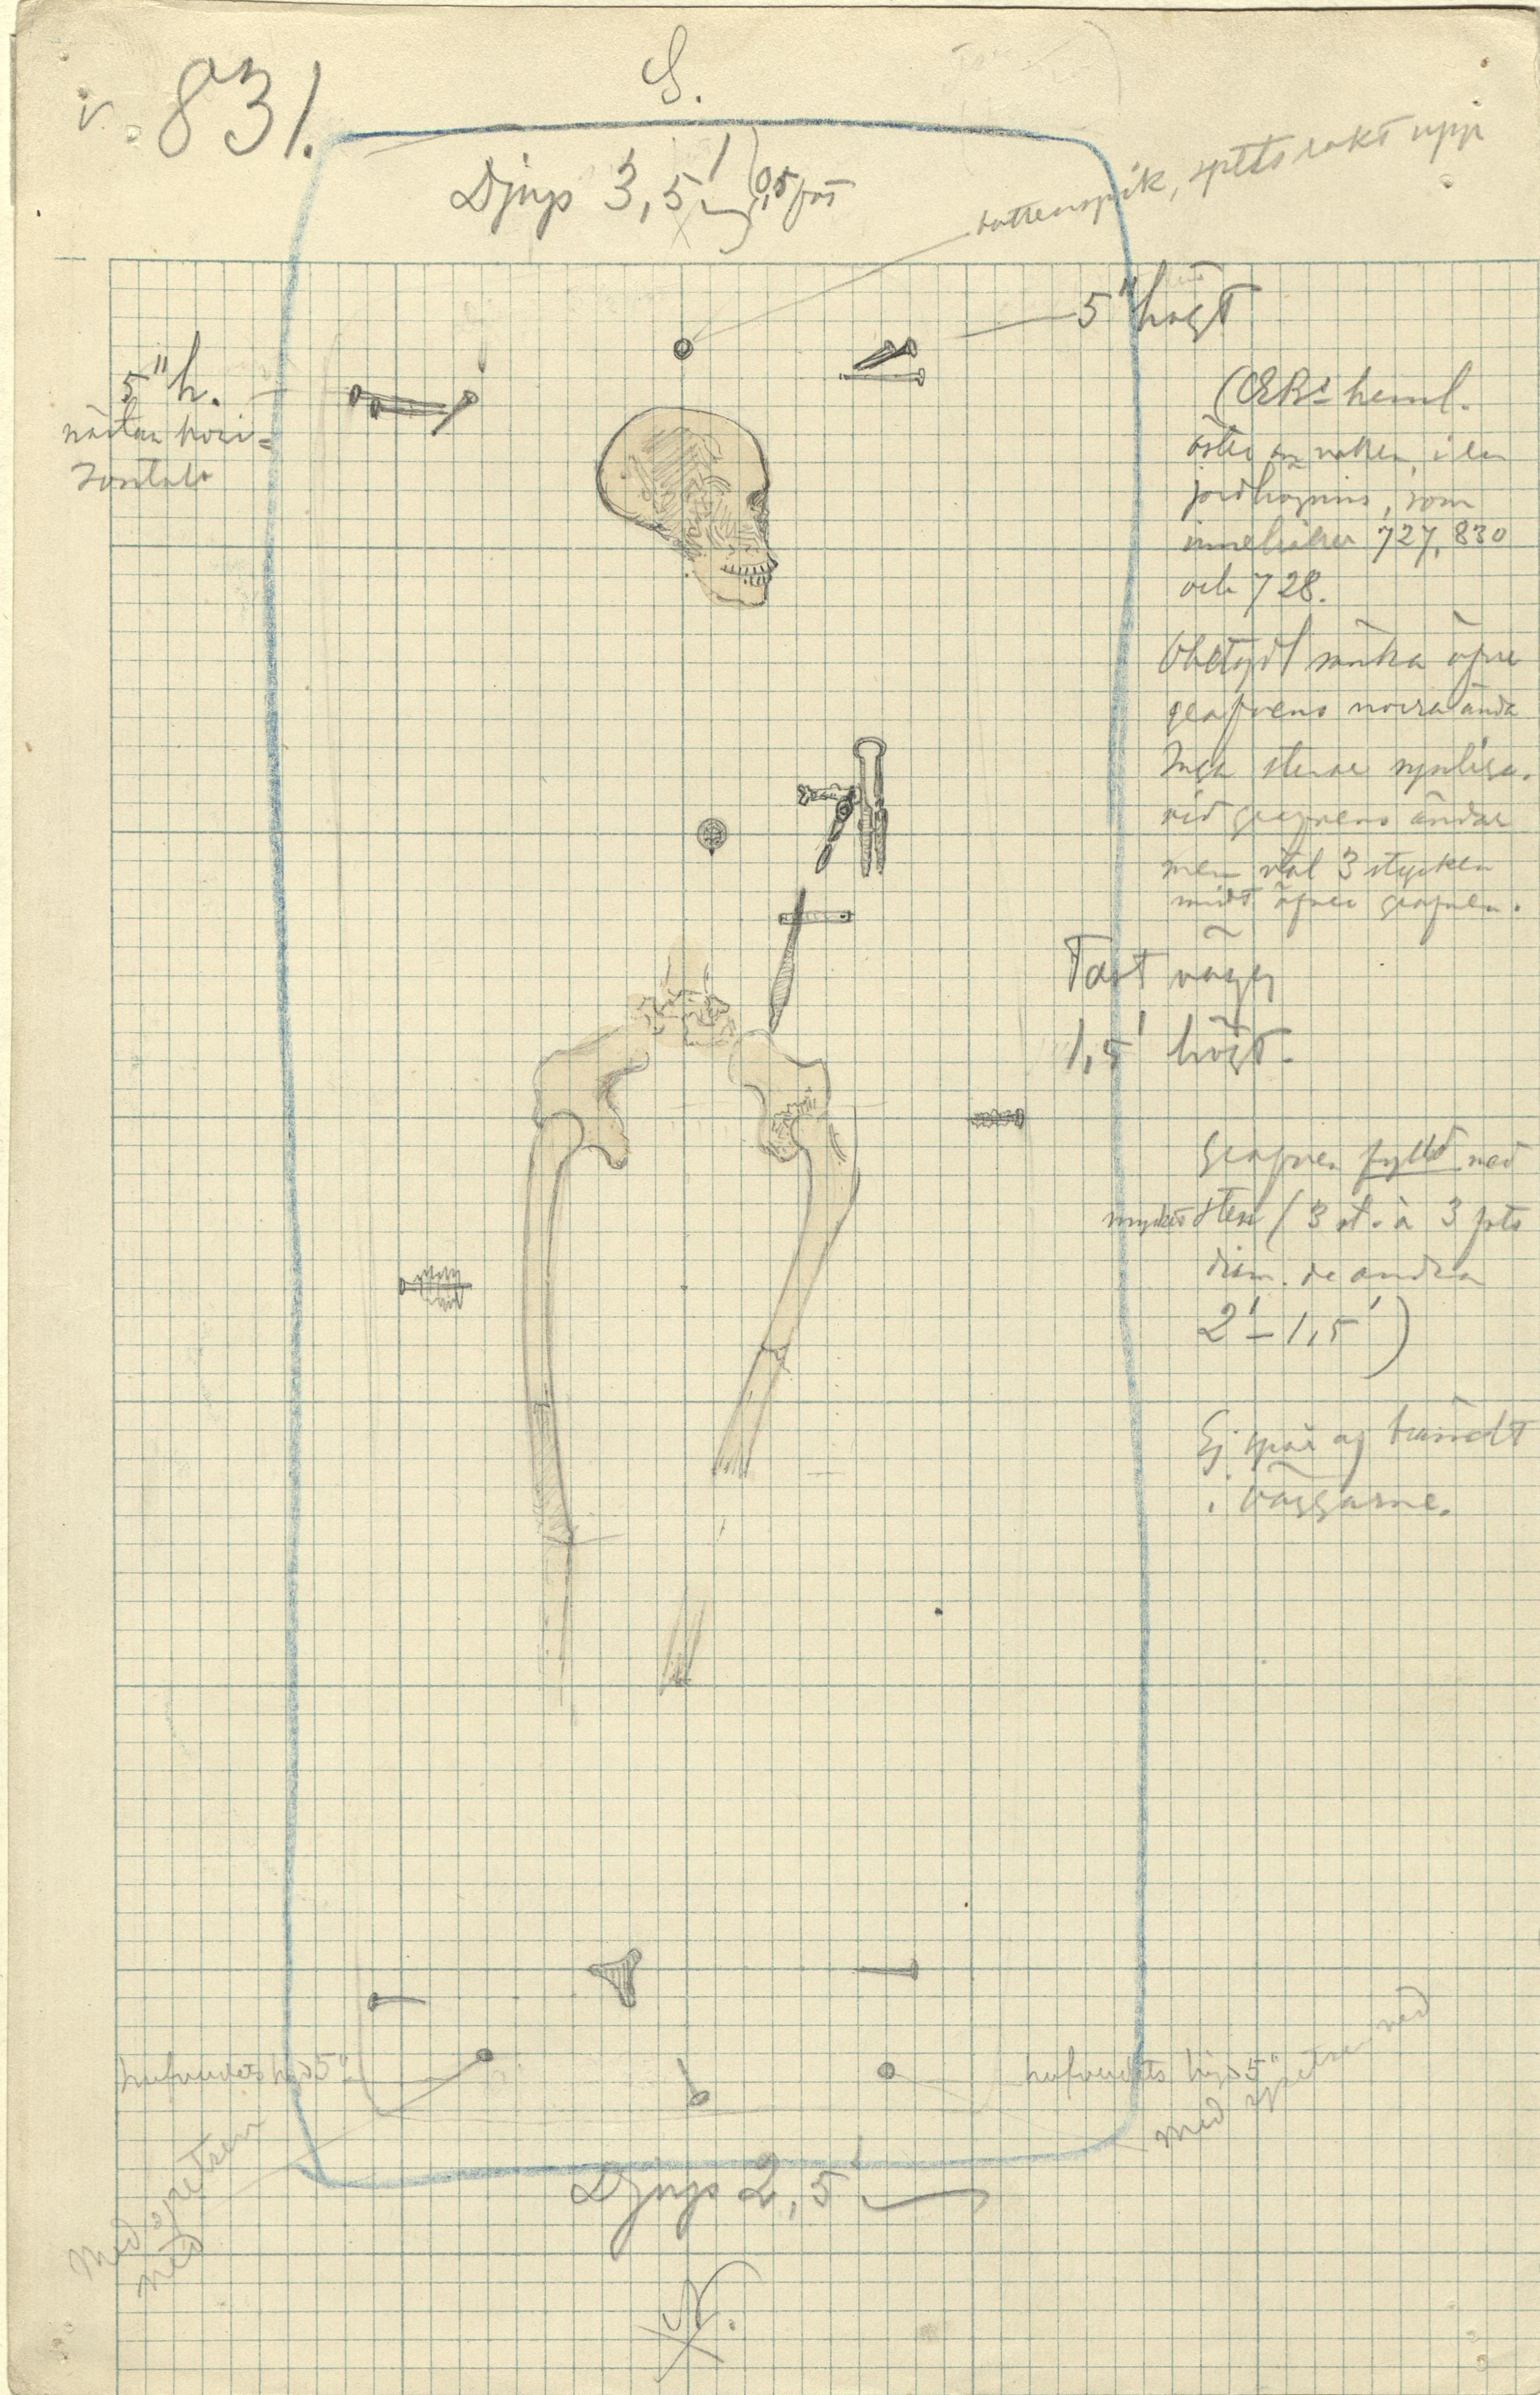 v. 831.
S.
Djup 3,5' 0,5 fot
bottenspik, spets rakt upp
5" högt
5" h.
nästan hori-
zontalt
heml.
öster om vaken, i en
som
innehåller 727, 830
och 728.
Obetydl sänka öfver
grafvens norra ända
Inga stenar synliga.
vid grafvens ändar
men väl 3 stycken
midt öfver grafven.
Tart vägg
1,5' högt.
Grafven fylld med
mycket sten (3 st. à 3 fots
diam. de andra
2'–1,5')
Ej spår af brändt
i väggarne.
hufvudets höjd 5"
med spetsen
ned
hufvudets höjd 5"
med spetsen ned
Djup 2,5'
N.